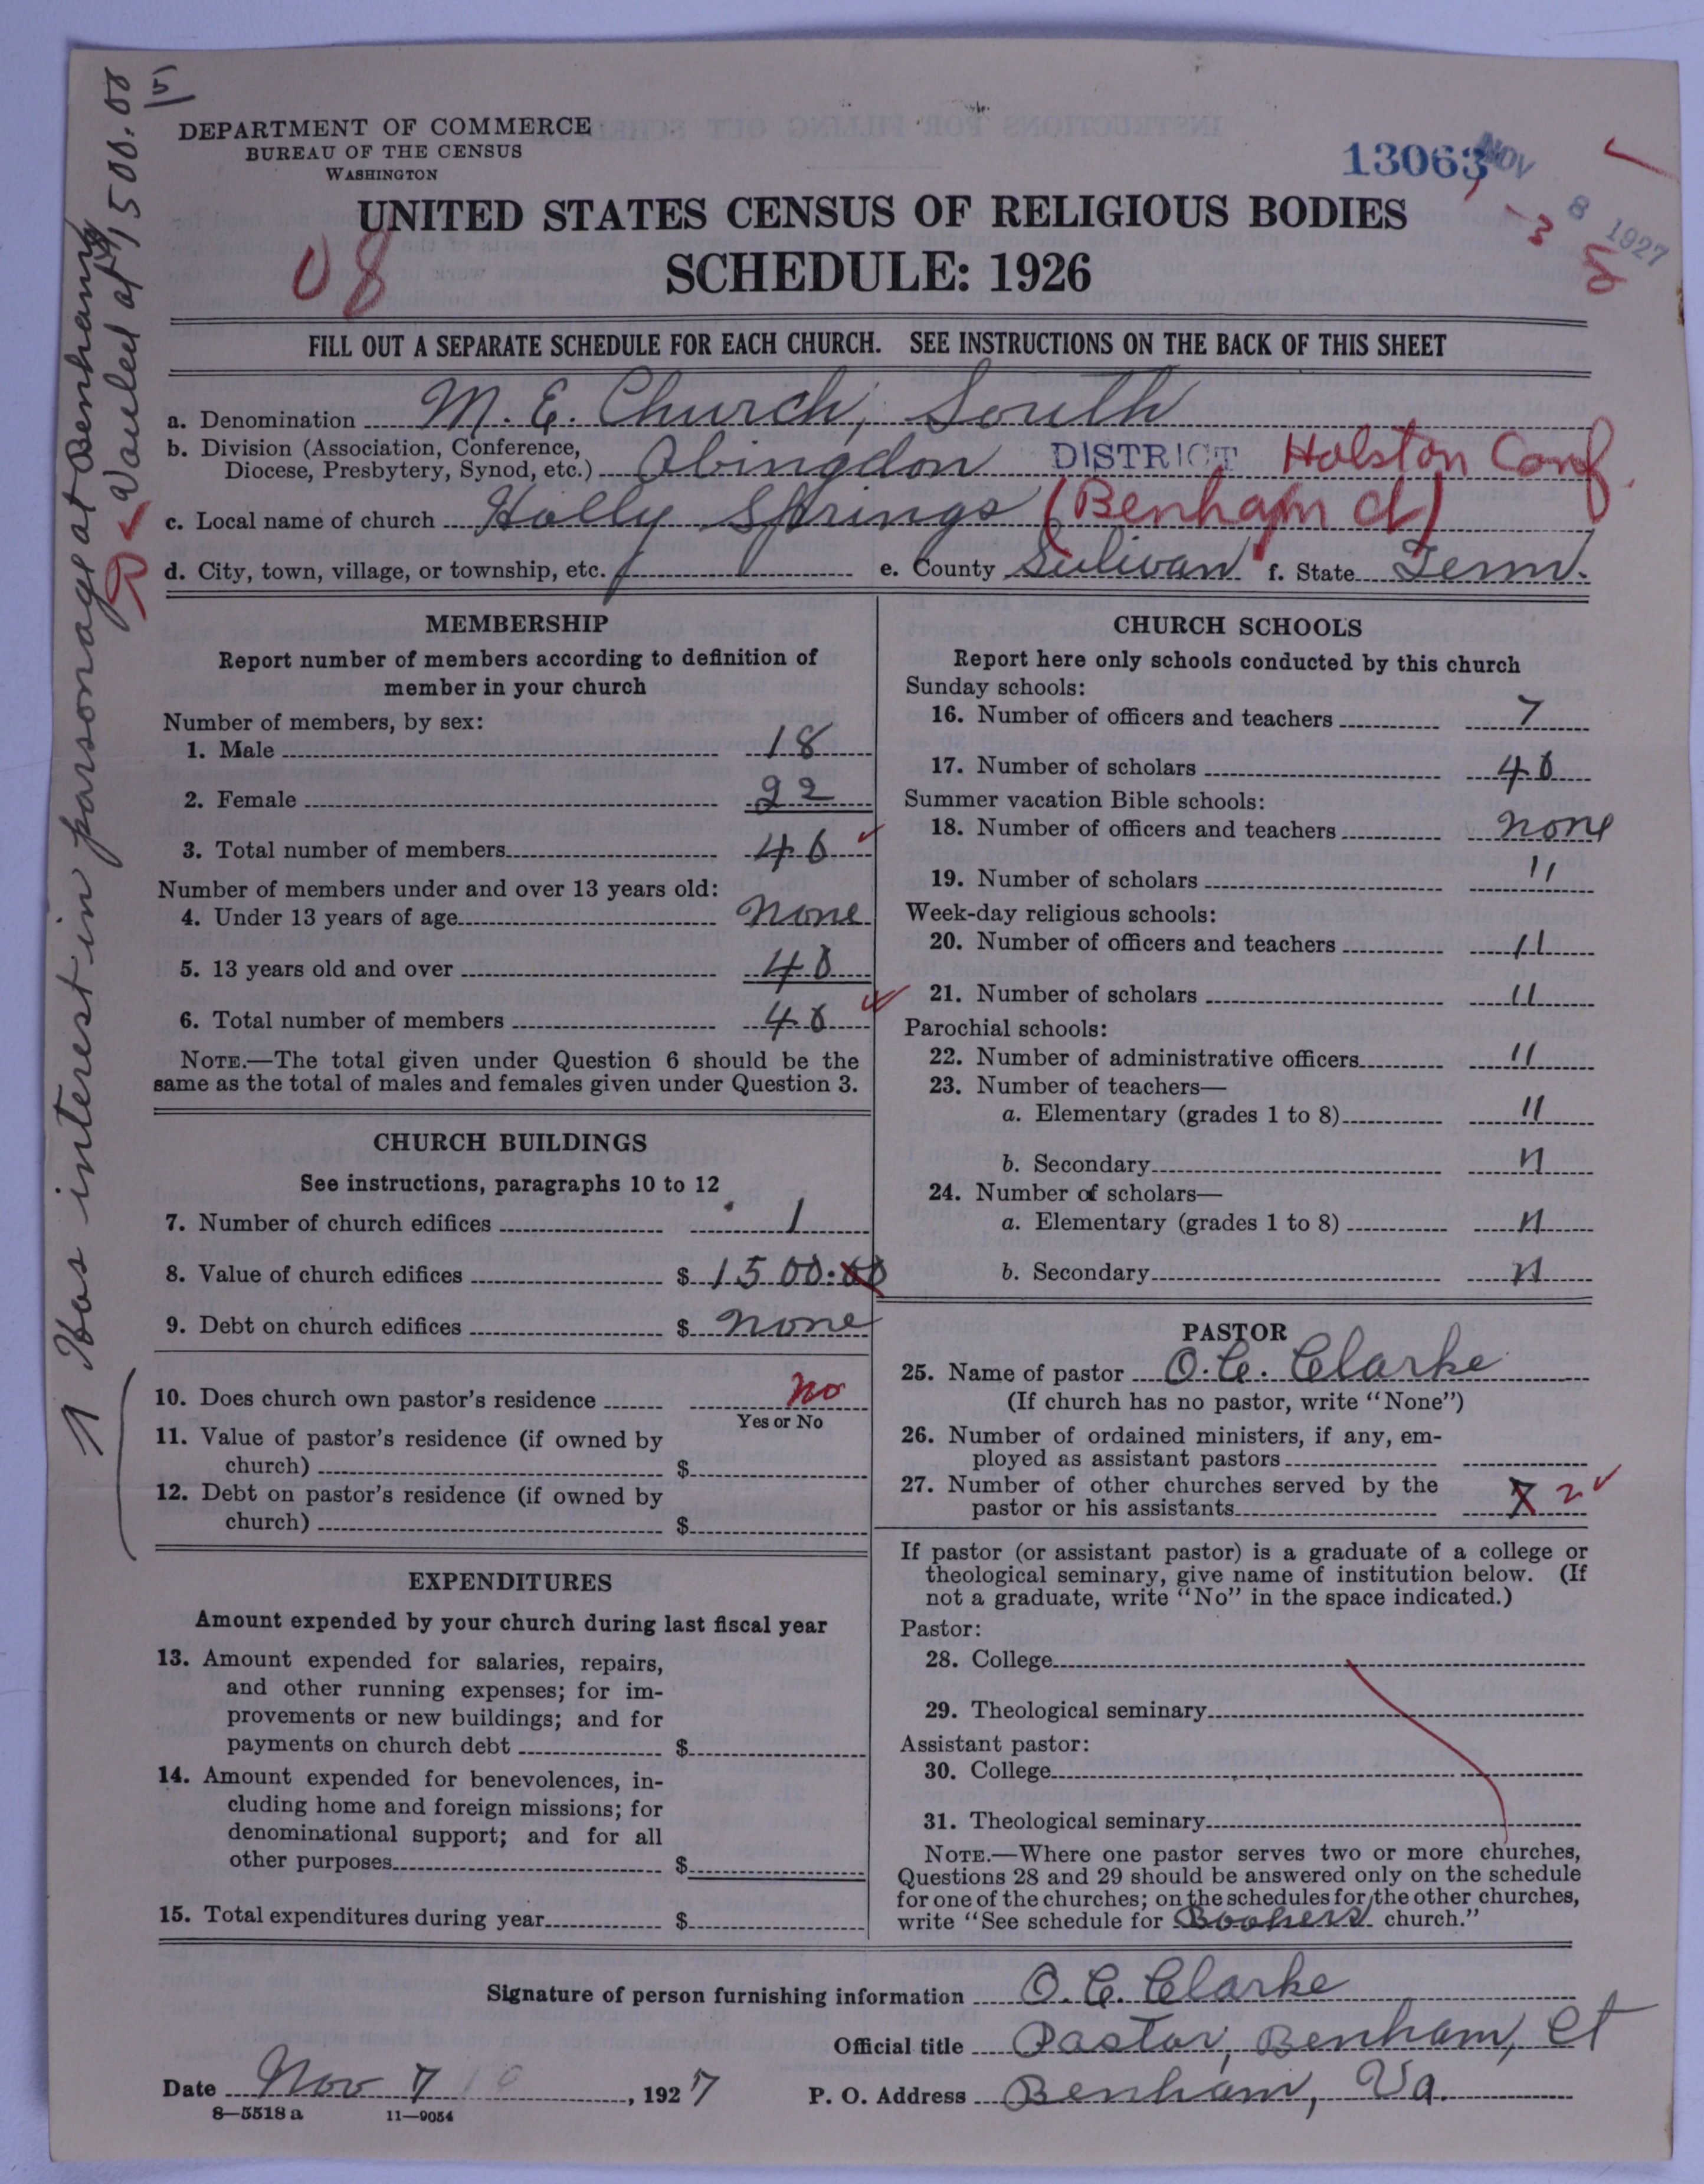 5
DEPARTMENT OF COMMERCE
BUREAU OF THE CENSUS
WASHINGTON
13063
NOV 8 1927
3
8
UNITED STATES CENSUS OF RELIGIOUS BODIES
08
SCHEDULE: 1926
FILL OUT A SEPARATE SCHEDULE FOR EACH CHURCH. SEE INSTRUCTIONS ON THE BACK OF THIS SHEET
a. Denomination M. E. Church, South
b. Division (Association, Conference,
Diocese, Presbytery, Synod, etc.) Abingdon DISTRICT Holston Conf.
c. Local name of church Holly Springs (Benham Ct)
d. City, town, village, or township, etc. e. County Sulivan f. State Tenn.
MEMBERSHIP
Report number of members according to definition of
member in your church
Number of members, by sex:
1. Male 18
2. Female 22
3. Total number of members 40
Number of members under and over 13 years old:
4. Under 13 years of age none
5. 13 years old and over 40
6. Total number of members 40
NOTE.—The total given under Question 6 should be the
same as the total of males and females given under Question 3.
CHURCH BUILDINGS
See instructions, paragraphs 10 to 12
7. Number of church edifices 1
8. Value of church edifices $ 1500.00
9. Debt on church edifices $ none
10. Does church own pastor's residence no
Yes or No
11. Value of pastor's residence (if owned by
church) $
12. Debt on pastor's residence (if owned by
church) $
EXPENDITURES
Amount expended by your church during last fiscal year
13. Amount expended for salaries, repairs,
and other running expenses; for im-
provements or new buildings; and for
payments on church debt $
14. Amount expended for benevolences, in-
cluding home and foreign missions; for
denominational support; and for all
other purposes $
15. Total expenditures during year $
CHURCH SCHOOLS
Report here only schools conducted by this church
Sunday schools:
16. Number of officers and teachers 7
17. Number of scholars 40
Summer vacation Bible schools:
18. Number of officers and teachers none
19. Number of scholars "
Week-day religious schools:
20. Number of officers and teachers "
21. Number of scholars "
Parochial schools:
22. Number of administrative officers "
23. Number of teachers—
a. Elementary (grades 1 to 8) "
b. Secondary "
24. Number of scholars—
a. Elementary (grades 1 to 8) "
b. Secondary "
PASTOR
25. Name of pastor O. C. Clarke
(If church has no pastor, write "None")
26. Number of ordained ministers, if any, em-
ployed as assistant pastors
27. Number of other churches served by the
pastor or his assistants 7 2
If pastor (or assistant pastor) is a graduate of a college or
theological seminary, give name of institution below. (If
not a graduate, write "No" in the space indicated.)
Pastor:
28. College
29. Theological seminary
Assistant pastor:
30. College
31. Theological seminary
NOTE.—Where one pastor serves two or more churches,
Questions 28 and 29 should be answered only on the schedule
for one of the churches; on the schedules for the other churches,
write "See schedule for Boohers church."
Signature of person furnishing information O. C. Clarke
Official title Pastor, Benham, Ct
Date Nov 7, 1927 P. O. Address Benham, Va.
8—5518 a 11—9054
Has interest in parsonage at Benhams
Valued at $1,500.00